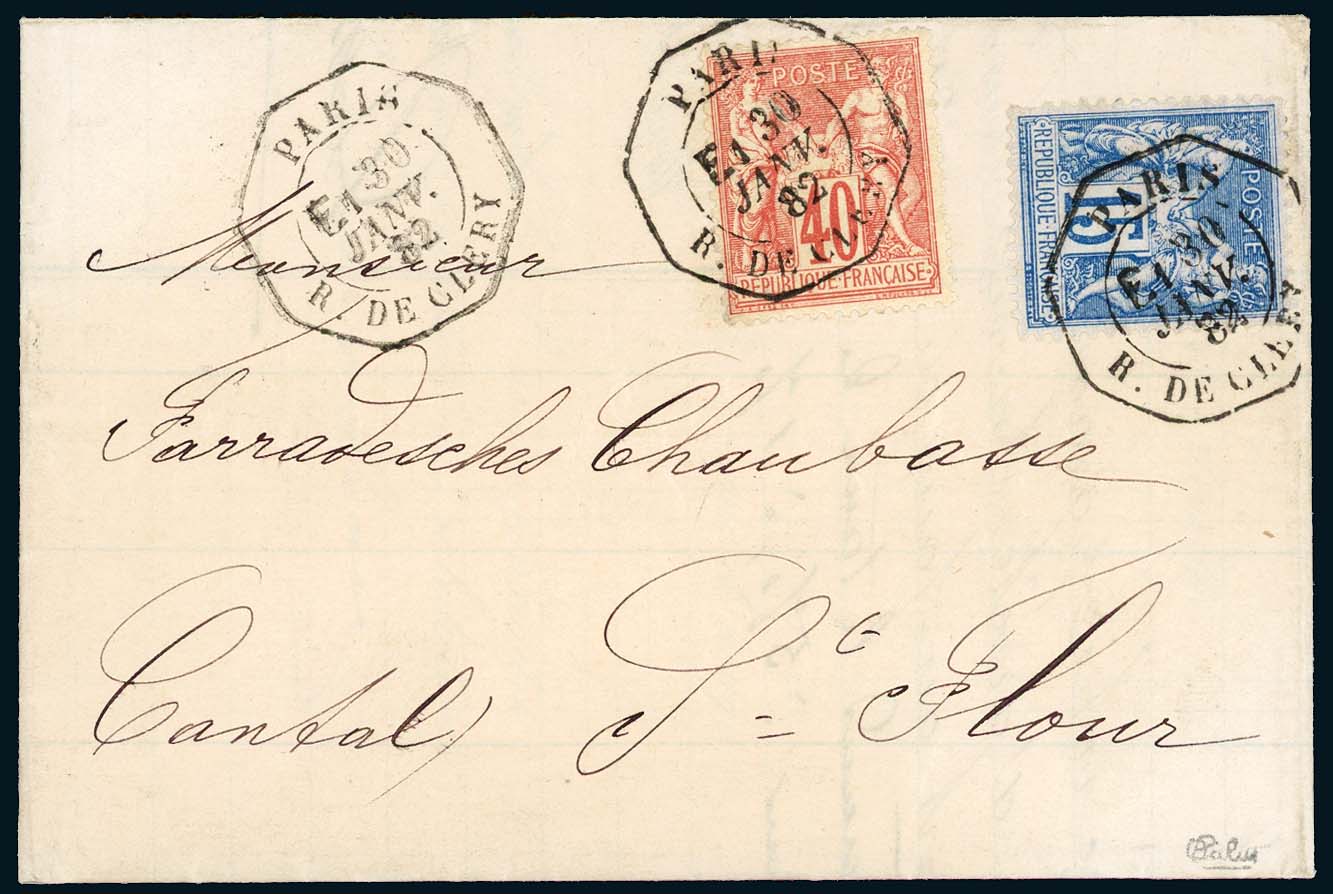 PARIS
E1 30
JANV.
82
R. DE CLERY
PARIS
E1 30
JANV.
82
R. DE CLERY
POSTE
40
REPUBLIQUE FRANÇAISE
PARIS
E1 30
JANV.
82
R. DE CLERY
POSTE
15
REPUBLIQUE FRANÇAISE
Monsieur
Farradesches Chaubasse
Cantal St Flour